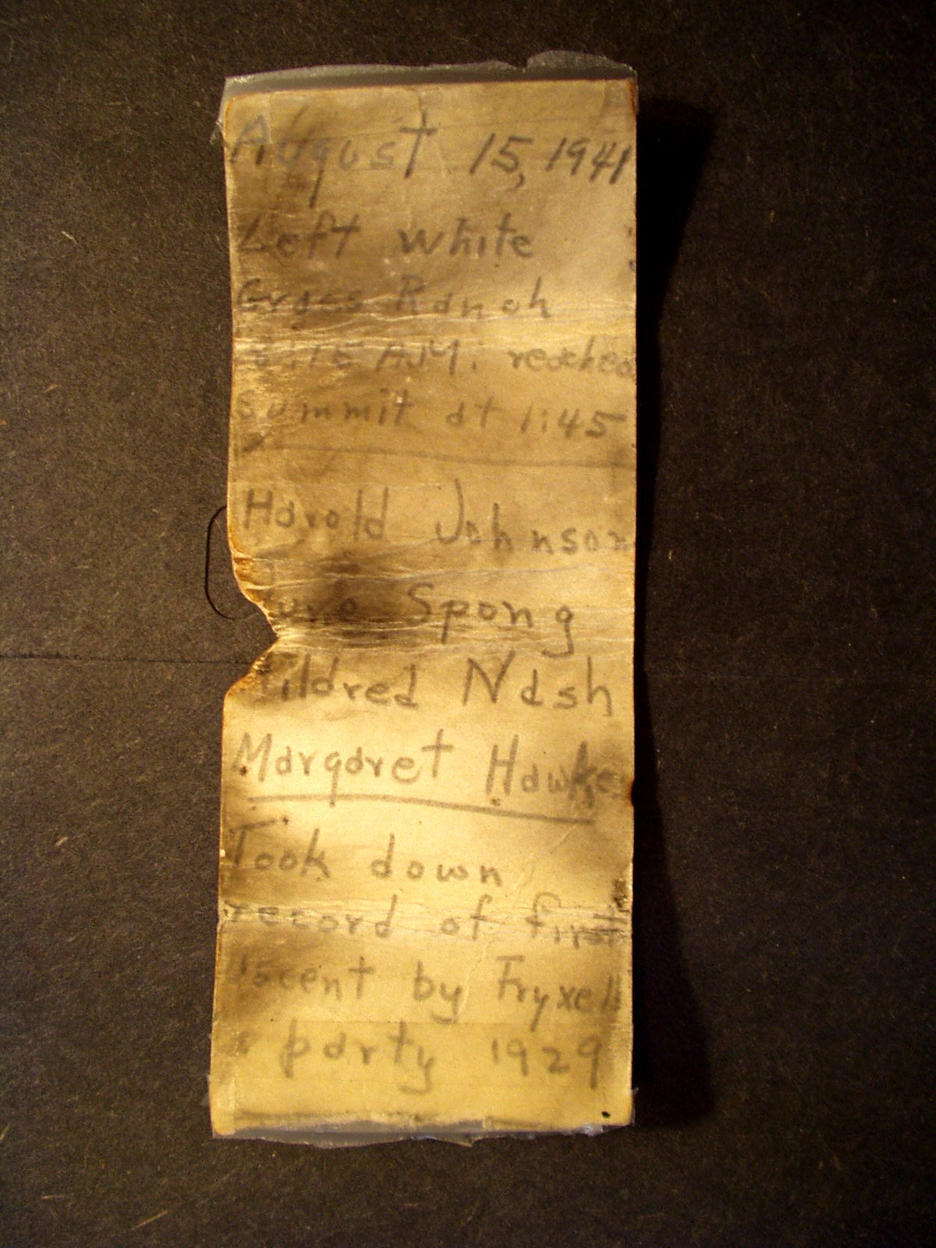 August 15, 1941
Left White
Grass Ranch
A.M. reached
summit at 1:45
Harold Johnson
Spong
ildred Nash
Margaret Hawke
Took down
record of first
ascent by Fryxell
& party 1929